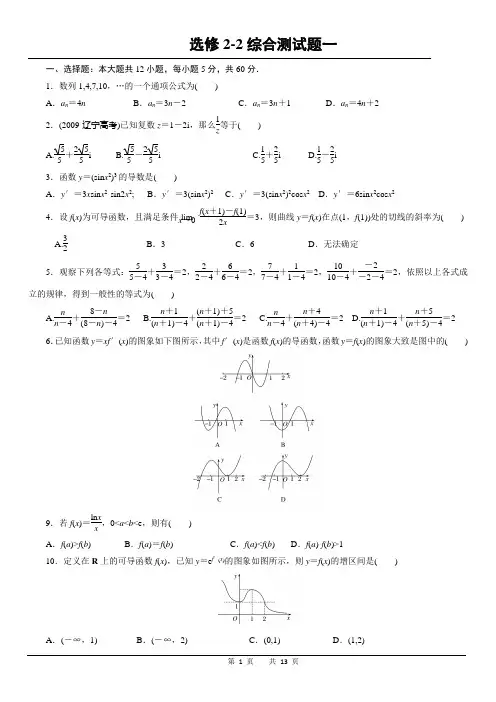 选修 2-2 综合测试题一
一、选择题：本大题共 12 小题，每小题 5 分，共 60 分．
1．数列 1,4,7,10，…的一个通项公式为(　　)
A．aₙ＝4n　B．aₙ＝3n－2　C．aₙ＝3n＋1　D．aₙ＝4n＋2
2．(2009·辽宁高考)已知复数 z＝1－2i，那么1/z等于(　　)
A.√5/5＋2√5/5 i　B.√5/5－2√5/5 i　C.1/5＋2/5 i　D.1/5－2/5 i
3．函数 y＝(sinx²)³ 的导数是(　　)
A．y′＝3xsinx²·sin2x²;　B．y′＝3(sinx²)²　C．y′＝3(sinx²)²cosx²　D．y′＝6sinx²cosx²
4．设 f(x)为可导函数，且满足条件lim x→0 f(x＋1)－f(1)/2x＝3，则曲线 y＝f(x)在点(1，f(1))处的切线的斜率为(　　)
A.3/2　B．3　C．6　D．无法确定
5．观察下列各等式：5/5－4＋3/3－4＝2，2/2－4＋6/6－4＝2，7/7－4＋1/1－4＝2，10/10－4＋－2/－2－4＝2，依照以上各式成
立的规律，得到一般性的等式为(　　)
A.n/n－4＋8－n/(8－n)－4＝2　B.n＋1/(n＋1)－4＋(n＋1)＋5/(n＋1)－4＝2　C.n/n－4＋n＋4/(n＋4)－4＝2　D.n＋1/(n＋1)－4＋n＋5/(n＋5)－4＝2
6.已知函数 y＝xf′(x)的图象如下图所示，其中 f′(x)是函数 f(x)的导函数，函数 y＝f(x)的图象大致是图中的(　　)
－2 －1 O 1 2 x
y －1 O 1 x　y －1 O 1 x
A　B
y －2 －1 O 1 2 x　y －2 －1 O 1 2 x
C　D
9．若 f(x)＝lnx/x，0<a<b<e，则有(　　)
A．f(a)>f(b)　B．f(a)＝f(b)　C．f(a)<f(b)　D．f(a)·f(b)>1
10．定义在 R 上的可导函数 f(x)，已知 y＝e^f′(x)的图象如图所示，则 y＝f(x)的增区间是(　　)
y 1 O 1 2 x
A．(－∞，1)　B．(－∞，2)　C．(0,1)　D．(1,2)
第 1 页　共 13 页